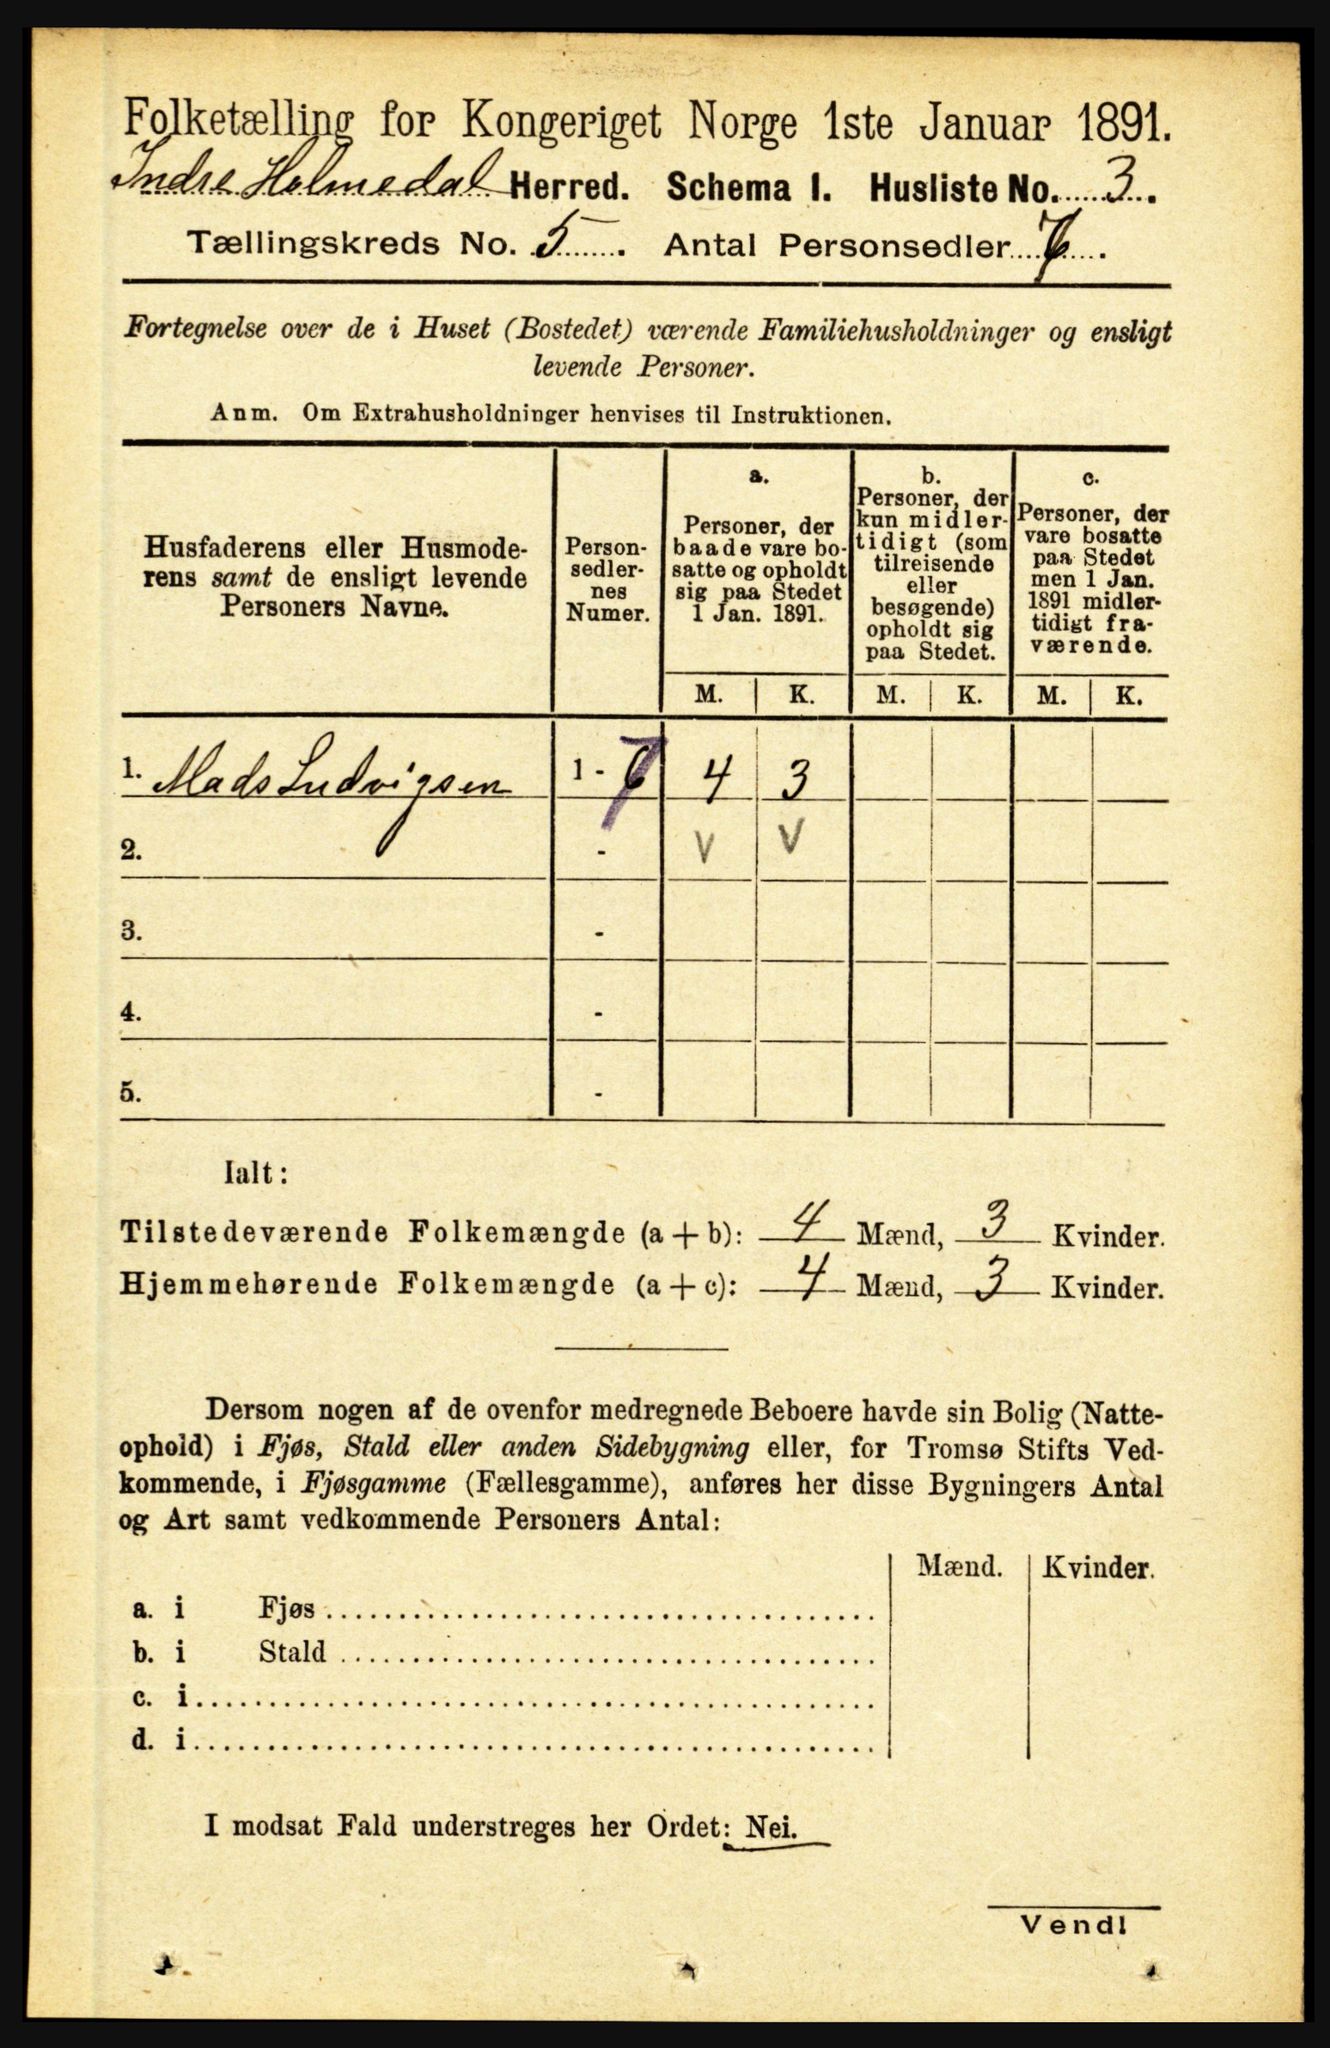 Folketælling for Kongeriget Norge 1ste Januar 1891.
Indre Holmedal Herred. Schema I. Husliste No. 3.
Tællingskreds No. 5. Antal Personsedler 7.
Fortegnelse over de i Huset (Bostedet) værende Familiehusholdninger og ensligt
levende Personer.
Anm. Om Extrahusholdninger henvises til Instruktionen.
Husfaderens eller Husmode-
rens samt de ensligt levende
Personers Navne.
Person-
sedler-
nes
Numer.
a.
Personer, der
baade vare bo-
satte og opholdt
sig paa Stedet
1 Jan. 1891.
b.
Personer, der
kun midler-
tidigt (som
tilreisende
eller
besøgende)
opholdt sig
paa Stedet.
c.
Personer, der
vare bosatte
paa Stedet
men 1 Jan.
1891 midler-
tidigt fra-
værende.
M. K. M. K. M. K.
1. Mads Ludvigsen 1 - 7 4 3
2. - V V
3. -
4. -
5. -
Ialt:
Tilstedeværende Folkemængde (a + b): 4 Mænd, 3 Kvinder.
Hjemmehørende Folkemængde (a + c): 4 Mænd, 3 Kvinder.
Dersom nogen af de ovenfor medregnede Beboere havde sin Bolig (Natte-
ophold) i Fjøs, Stald eller anden Sidebygning eller, for Tromsø Stifts Ved-
kommende, i Fjøsgamme (Fællesgamme), anføres her disse Bygningers Antal
og Art samt vedkommende Personers Antal:
Mænd. Kvinder.
a. i Fjøs
b. i Stald
c. i
d. i
I modsat Fald understreges her Ordet: Nei.
Vendl